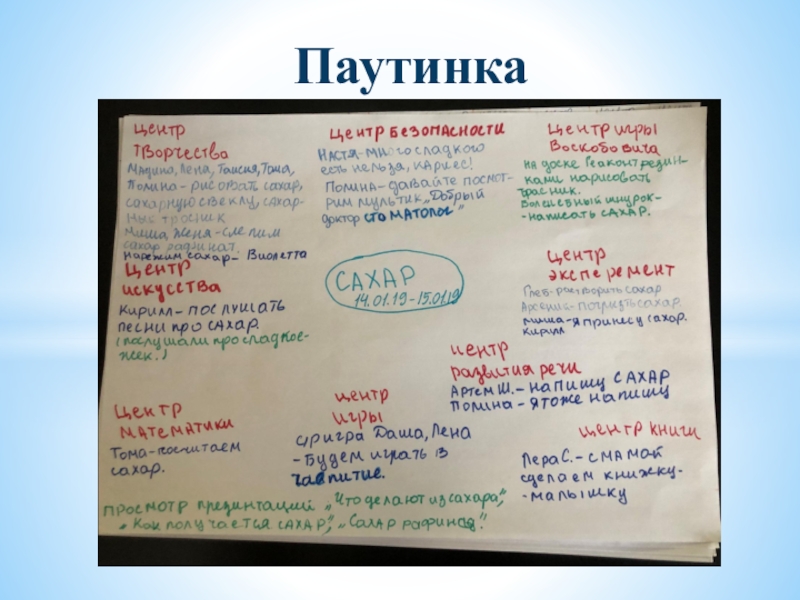 Паутинка
центр
творчества
Мадина, Лена, Таисия, Тома,
Полина - рисовать сахар,
сахарную свеклу, сахар-
ный тросник
Миша, Женя - слепим
сахар рафинат.
нарежим сахар - Виолетта
центр безопасности
Настя - много сладкого
есть нельзя, кариес!
Полина - давайте посмот-
рим мультик „Добрый
доктор стоматолог"
центр игры
Воскобовича
на доске Геаконт резин-
ками нарисовать
трасник.
Волшебный шнурок-
- написать САХАР.
САХАР
14.01.19 - 15.01.19
центр
искусства
Кирилл - послушать
песни про сахар.
(послушали про сладкое-
жек.)
центр
эксперемент
Глеб - растворить сахар
Арсений - погрызть сахар.
миша - я принесу сахар.
Кирилл
центр
развития речи
Артем Ш. - напишу САХАР
Полина - я тоже напишу
центр
математики
Тома - посчитаем
сахар.
центр
игры
с/р игра Даша, Лена
- Будем играть в
чаепитие.
центр книги
Лера С. - с мамой
сделаем книжку-
- малышку
просмотр презентаций „Что делают из сахара",
„Как получается САХАР", „Сахар рафинад".